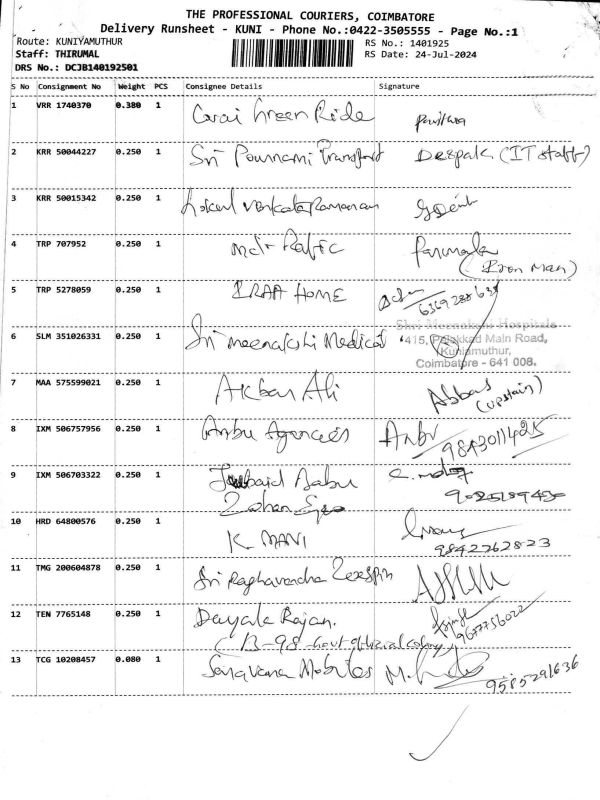 THE PROFESSIONAL COURIERS, COIMBATORE
Delivery Runsheet - KUNI - Phone No.:0422-3505555 - Page No.:1
Route: KUNIYAMUTHUR
RS No.: 1401925
Staff: THIRUMAL
RS Date: 24-Jul-2024
DRS No.: DCJB140192501
S No Consignment No Weight PCS Consignee Details Signature
1 VRR 1740370 0.380 1 Green Ride
2 KRR 50044227 0.250 1 Sri Pournami Transport Deepak (IT staff)
3 KRR 50015342 0.250 1 Venkata Ramanan
4 TRP 707952 0.250 1 Md. Rafic
(Iron Man)
5 TRP 5278059 0.250 1 IRAA HOME
6 SLM 351026331 0.250 1 Sri Meenakshi Medical
Shri Meenakshi Hospitals
415, Palakkad Main Road,
Kuniamuthur,
Coimbatore - 641 008.
7 MAA 575599021 0.250 1 Akbar Ali Abbas
(upstair)
8 IXM 506757956 0.250 1 Anbu Agencies Anbu
9843011425
9 IXM 506703322 0.250 1 Babu
10 HRD 64800576 0.250 1 K MANI
9842262823
11 TMG 200604878 0.250 1 Sri Raghavendra
12 TEN 7765148 0.250 1 Dayala Rajan.
9677756022
(B-98 Govt official colony)
13 TCG 10208457 0.080 1 Saravana Mobiles
9585291636